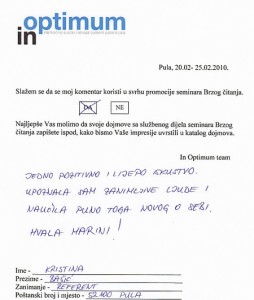 in optimum
Pula, 20.02- 25.02.2010.
Slažem se da se moj komentar koristi u svrhu promocije seminara Brzog čitanja.
DA NE
Najljepše Vas molimo da svoje dojmove sa službenog dijela seminara Brzog
čitanja zapišete ispod, kako bismo Vaše impresije uvrstili u katalog dojmova.
In Optimum team
JEDNO POZITIVNO I LIJEPO ISKUSTVO.
UPOZNALA SAM ZANIMLJIVE LJUDE I
NAUČILA PUNO TOGA NOVOG O SEBI.
HVALA MARINI!
Ime - KRISTINA
Prezime - BAŠIĆ
Zanimanje - REFERENT
Poštanski broj i mjesto - 52100 PULA